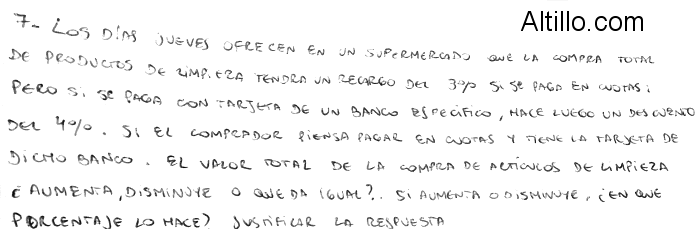 Altillo.com
7- LOS DÍAS JUEVES OFRECEN EN UN SUPERMERCADO QUE LA COMPRA TOTAL
DE PRODUCTOS DE LIMPIEZA TENDRA UN RECARGO DEL 3% SI SE PAGA EN CUOTAS;
PERO SI SE PAGA CON TARJETA DE UN BANCO ESPECÍFICO, HACE LUEGO UN DESCUENTO
DEL 4%. SI EL COMPRADOR PIENSA PAGAR EN CUOTAS Y TIENE LA TARJETA DE
DICHO BANCO. EL VALOR TOTAL DE LA COMPRA DE ARTICULOS DE LIMPIEZA
¿AUMENTA, DISMINUYE O QUEDA IGUAL?. SI AUMENTA O DISMINUYE, ¿EN QUE
PORCENTAJE LO HACE? JUSTIFICAR LA RESPUESTA